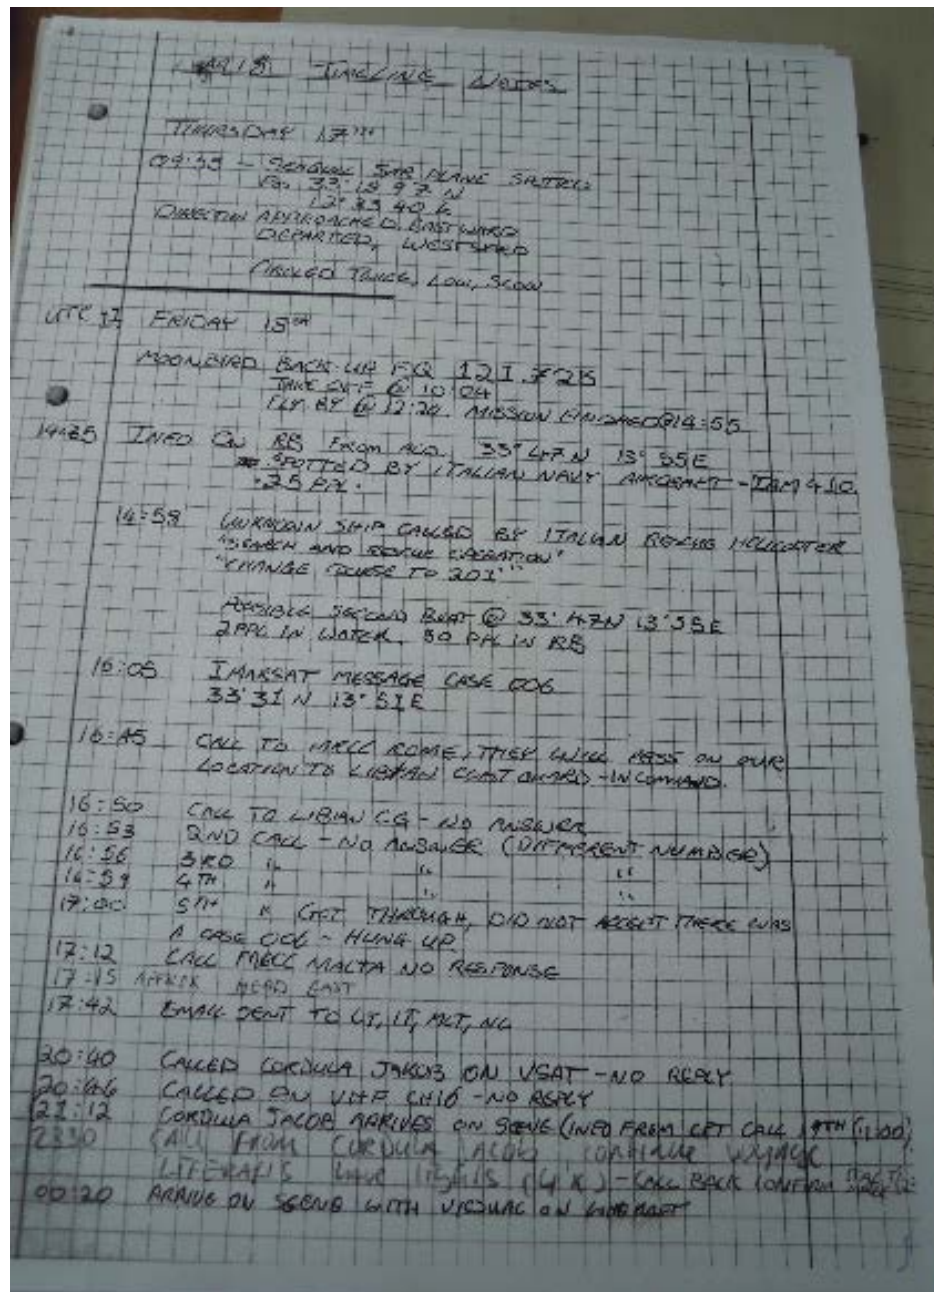 TIMELINE NOTES
THURSDAY 17TH
09:35 - SEAPLANE SPOTTED
33° 18 97 N
12° 33 40 E
DIRECTION APPROACHED, EASTWARD
DEPARTED, WESTWARD
CIRCLED TWICE, LOW, SLOW
UTC FRIDAY 18TH
MOONBIRD BACK-UP FQ 121
TAKE OFF @ 10:04
FLY BY @ 12:20. MISSION FINISHED @14:55
INFO ON RB FROM 33° 47N 13° 55E
SPOTTED BY ITALIAN NAVY AIRCRAFT -
·25 PPL·
14:58 UNKNOWN SHIP CALLED BY ITALIAN RESCUE HELICOPTER
"SEARCH AND RESCUE OPERATION"
"CHANGE COURSE TO 201°"
POSSIBLE SECOND BOAT @ 33° 47N 13° 55E
2PPL IN WATER, 50 PPL IN RB
16:05 IMARSAT MESSAGE CASE 006
33° 31 N 13° 51E
16:45 CALL TO MRCC ROME, THEY WILL PASS ON OUR
LOCATION TO LIBYAN COAST GUARD - IN COMMAND.
16:50 CALL TO LIBIAN CG - NO ANSWER
16:53 2ND CALL - NO ANSWER (DIFFERENT NUMBER)
16:56 3RD " " "
16:59 4TH " " "
17:00 5TH " GET THROUGH, DID NOT ACCEPT THERE WAS
A CASE 006 - HUNG UP
17:12 CALL MRCC MALTA NO RESPONSE
17:15 APPRX HEAD EAST
17:42 EMAIL SENT TO IT, MLT, NL
20:40 CALLED CORDULA JAKOB ON VSAT - NO REPLY
20:46 CALLED ON VHF CH16 - NO REPLY
21:12 CORDULA JACOB ARRIVES ON SCENE (INFO FROM CALL
2330 CALL FROM CORDULA JACOB CONTINUE VOYAGE
LIFERAFTS HAVE LIGHTS (4 X) - CALL BACK CONFIRM
00:20 ARRIVE ON SCENE WITH VISUAL ON